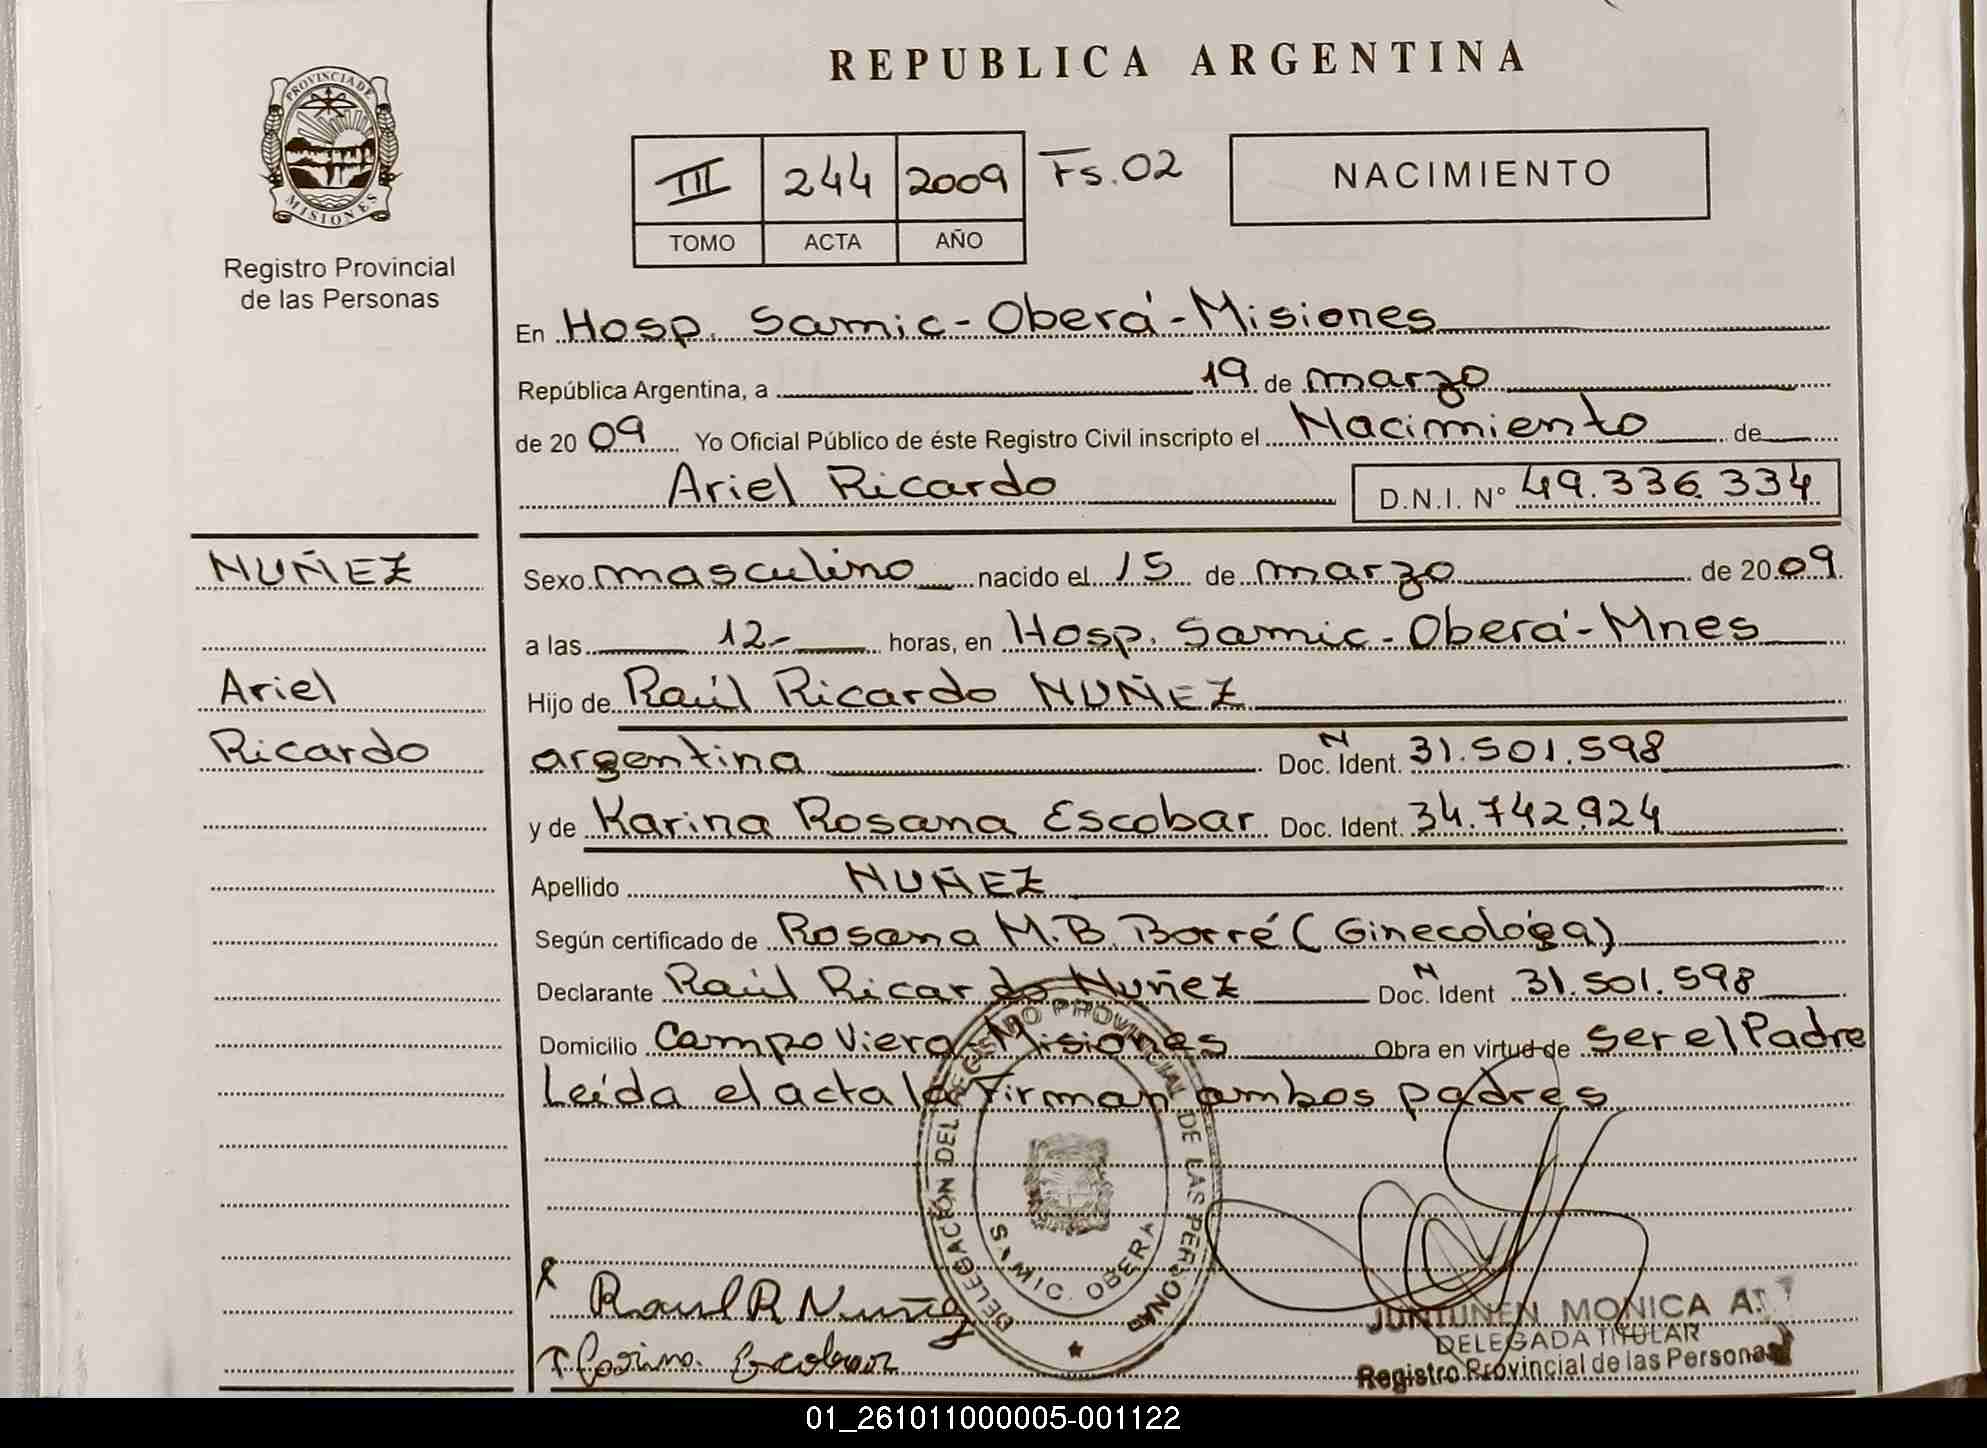 REPUBLICA ARGENTINA
PROVINCIA DE MISIONES
Registro Provincial
de las Personas
III 244 2009 Fs. 02
TOMO ACTA AÑO
NACIMIENTO
En Hosp. Samic - Oberá - Misiones
República Argentina, a 19 de marzo
de 20 09 Yo Oficial Público de éste Registro Civil inscripto el Nacimiento de
Ariel Ricardo D.N.I. N° 49.336.334
NUÑEZ
Ariel
Ricardo
Sexo masculino nacido el 15 de marzo de 20 09
a las 12- horas, en Hosp. Samic - Oberá - Mnes
Hijo de Raúl Ricardo NUÑEZ
argentina Doc. N Ident. 31.501.598
y de Karina Rosana Escobar Doc. Ident. 34.742.924
Apellido NUÑEZ
Según certificado de Rosana M.B. Borré (Ginecológa)
Declarante Raúl Ricardo Nuñez Doc. N Ident 31.501.598
Domicilio Campo Viera - Misiones Obra en virtud de ser el Padre
Leída el acta la firman ambos padres
DELEGACIÓN DEL REGISTRO PROVINCIAL DE LAS PERSONAS
SAMIC. OBERA
Raul R Nuñez
Escobar
JUNTUNEN MONICA A.
DELEGADA TITULAR
Registro Provincial de las Personas
01_261011000005-001122